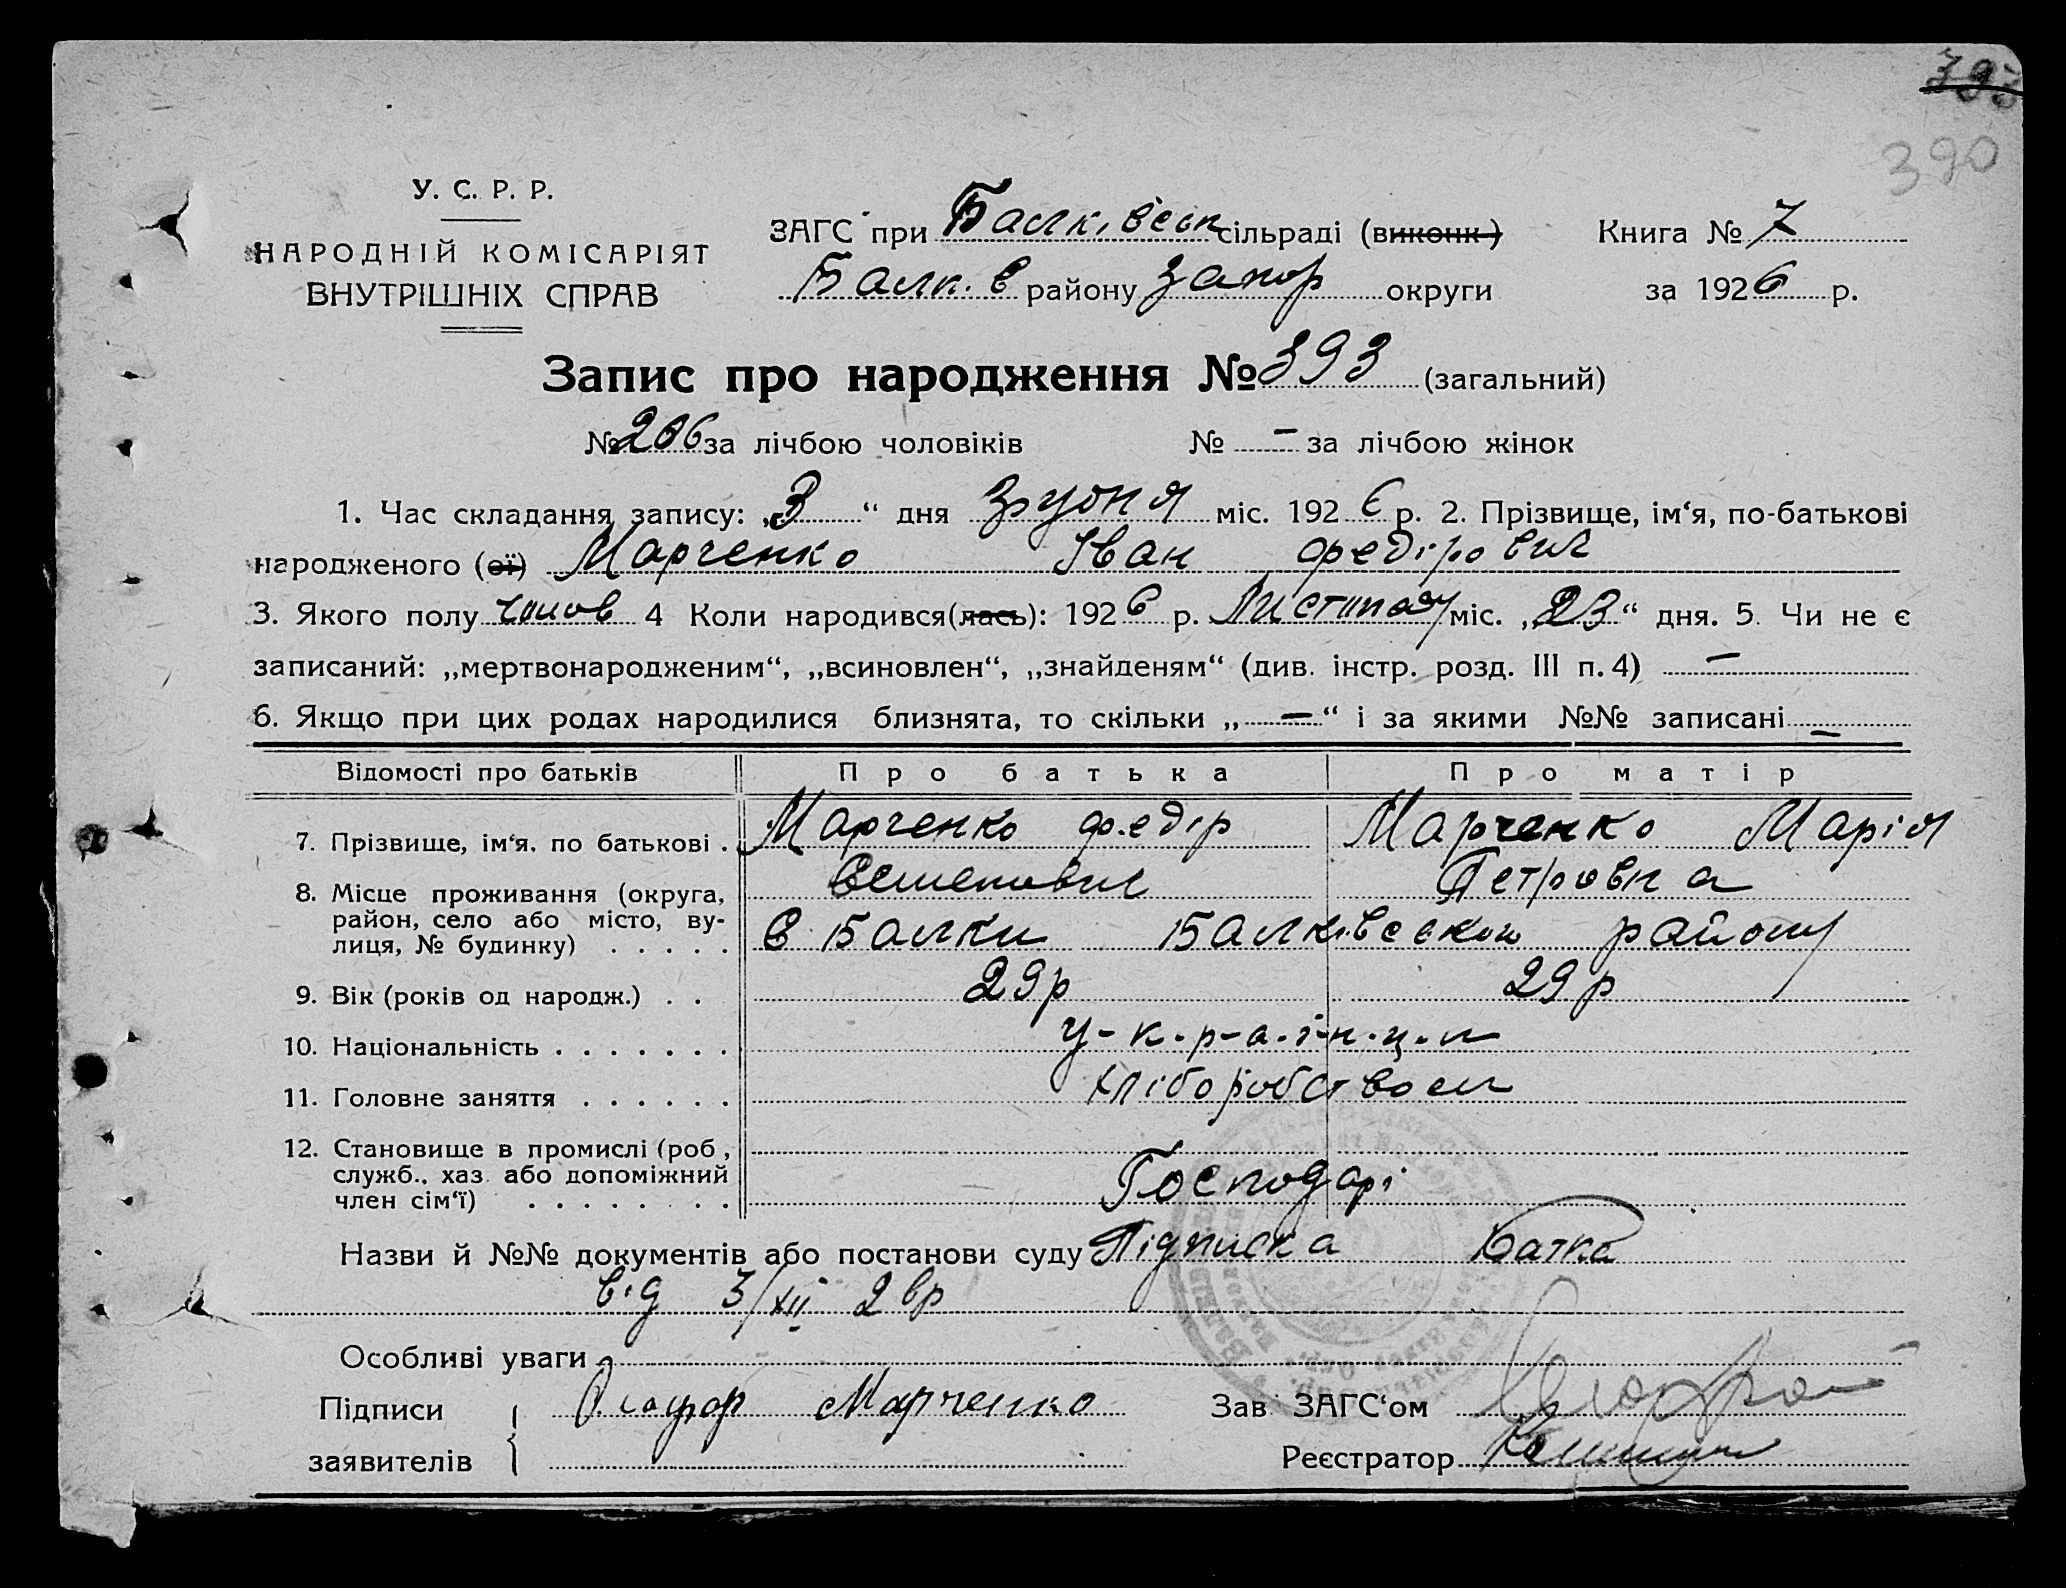 393
390
У. С. Р. Р.
НАРОДНІЙ КОМІСАРІЯТ
ВНУТРІШНІХ СПРАВ
ЗАГС при Балківськ сільраді (виконк.)
Балк. в району Запор округи
Книга № 7
за 1926 р.
Запис про народження № 393 (загальний)
№ 206 за лічбою чоловіків № — за лічбою жінок
1. Час складання запису: „3“ дня Грудня міс. 1926 р. 2. Прізвище, ім‘я, по-батькові
народженого (ої) Марченко Іван Федірович
3. Якого полу чолов 4 Коли народився(лась): 1926 р. Листопаду міс. „23“ дня. 5. Чи не є
записаний: „мертвонародженим“, „всиновлен“, „знайденям“ (див. інстр. розд. III п. 4) —
6. Якщо при цих родах народилися близнята, то скільки „—“ і за якими №№ записані —
Відомості про батьків Про батька Про матір
7. Прізвище, ім‘я, по батькові . Марченко Федір Марченко Марія
Семенович Петровна
8. Місце проживання (округа,
район, село або місто, ву-
лиця, № будинку) . . . . . в Балки Балківської району
9. Вік (років од народж.) . . 29р 29р
10. Національність . . . . . . . У-к-р-а-ї-н-ц-і
11. Головне заняття . . . . . . хліборобством
12. Становище в промислі (роб.,
служб., хаз. або допоміжний
член сім‘ї) . . . . . . . . Господарі
Назви й №№ документів або постанови суду Підписка батка
від 3/XII 26р
Особливі уваги
Підписи
заявителів
Марченко
Зав ЗАГС‘ом
Реєстратор